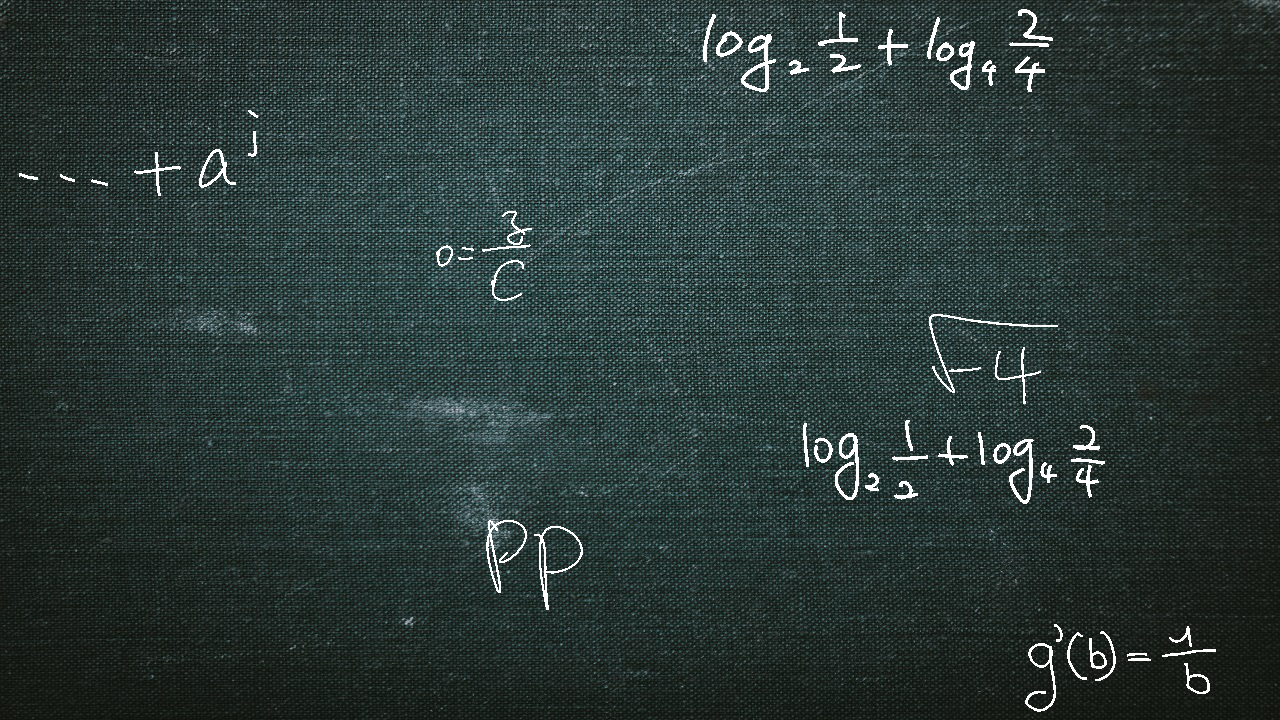 log₂ 1/2 + log₄ 2/4
--- + a^j
0 = z/C
√-4
log₂ 1/2 + log₄ 2/4
pp
g'(b) = 1/b